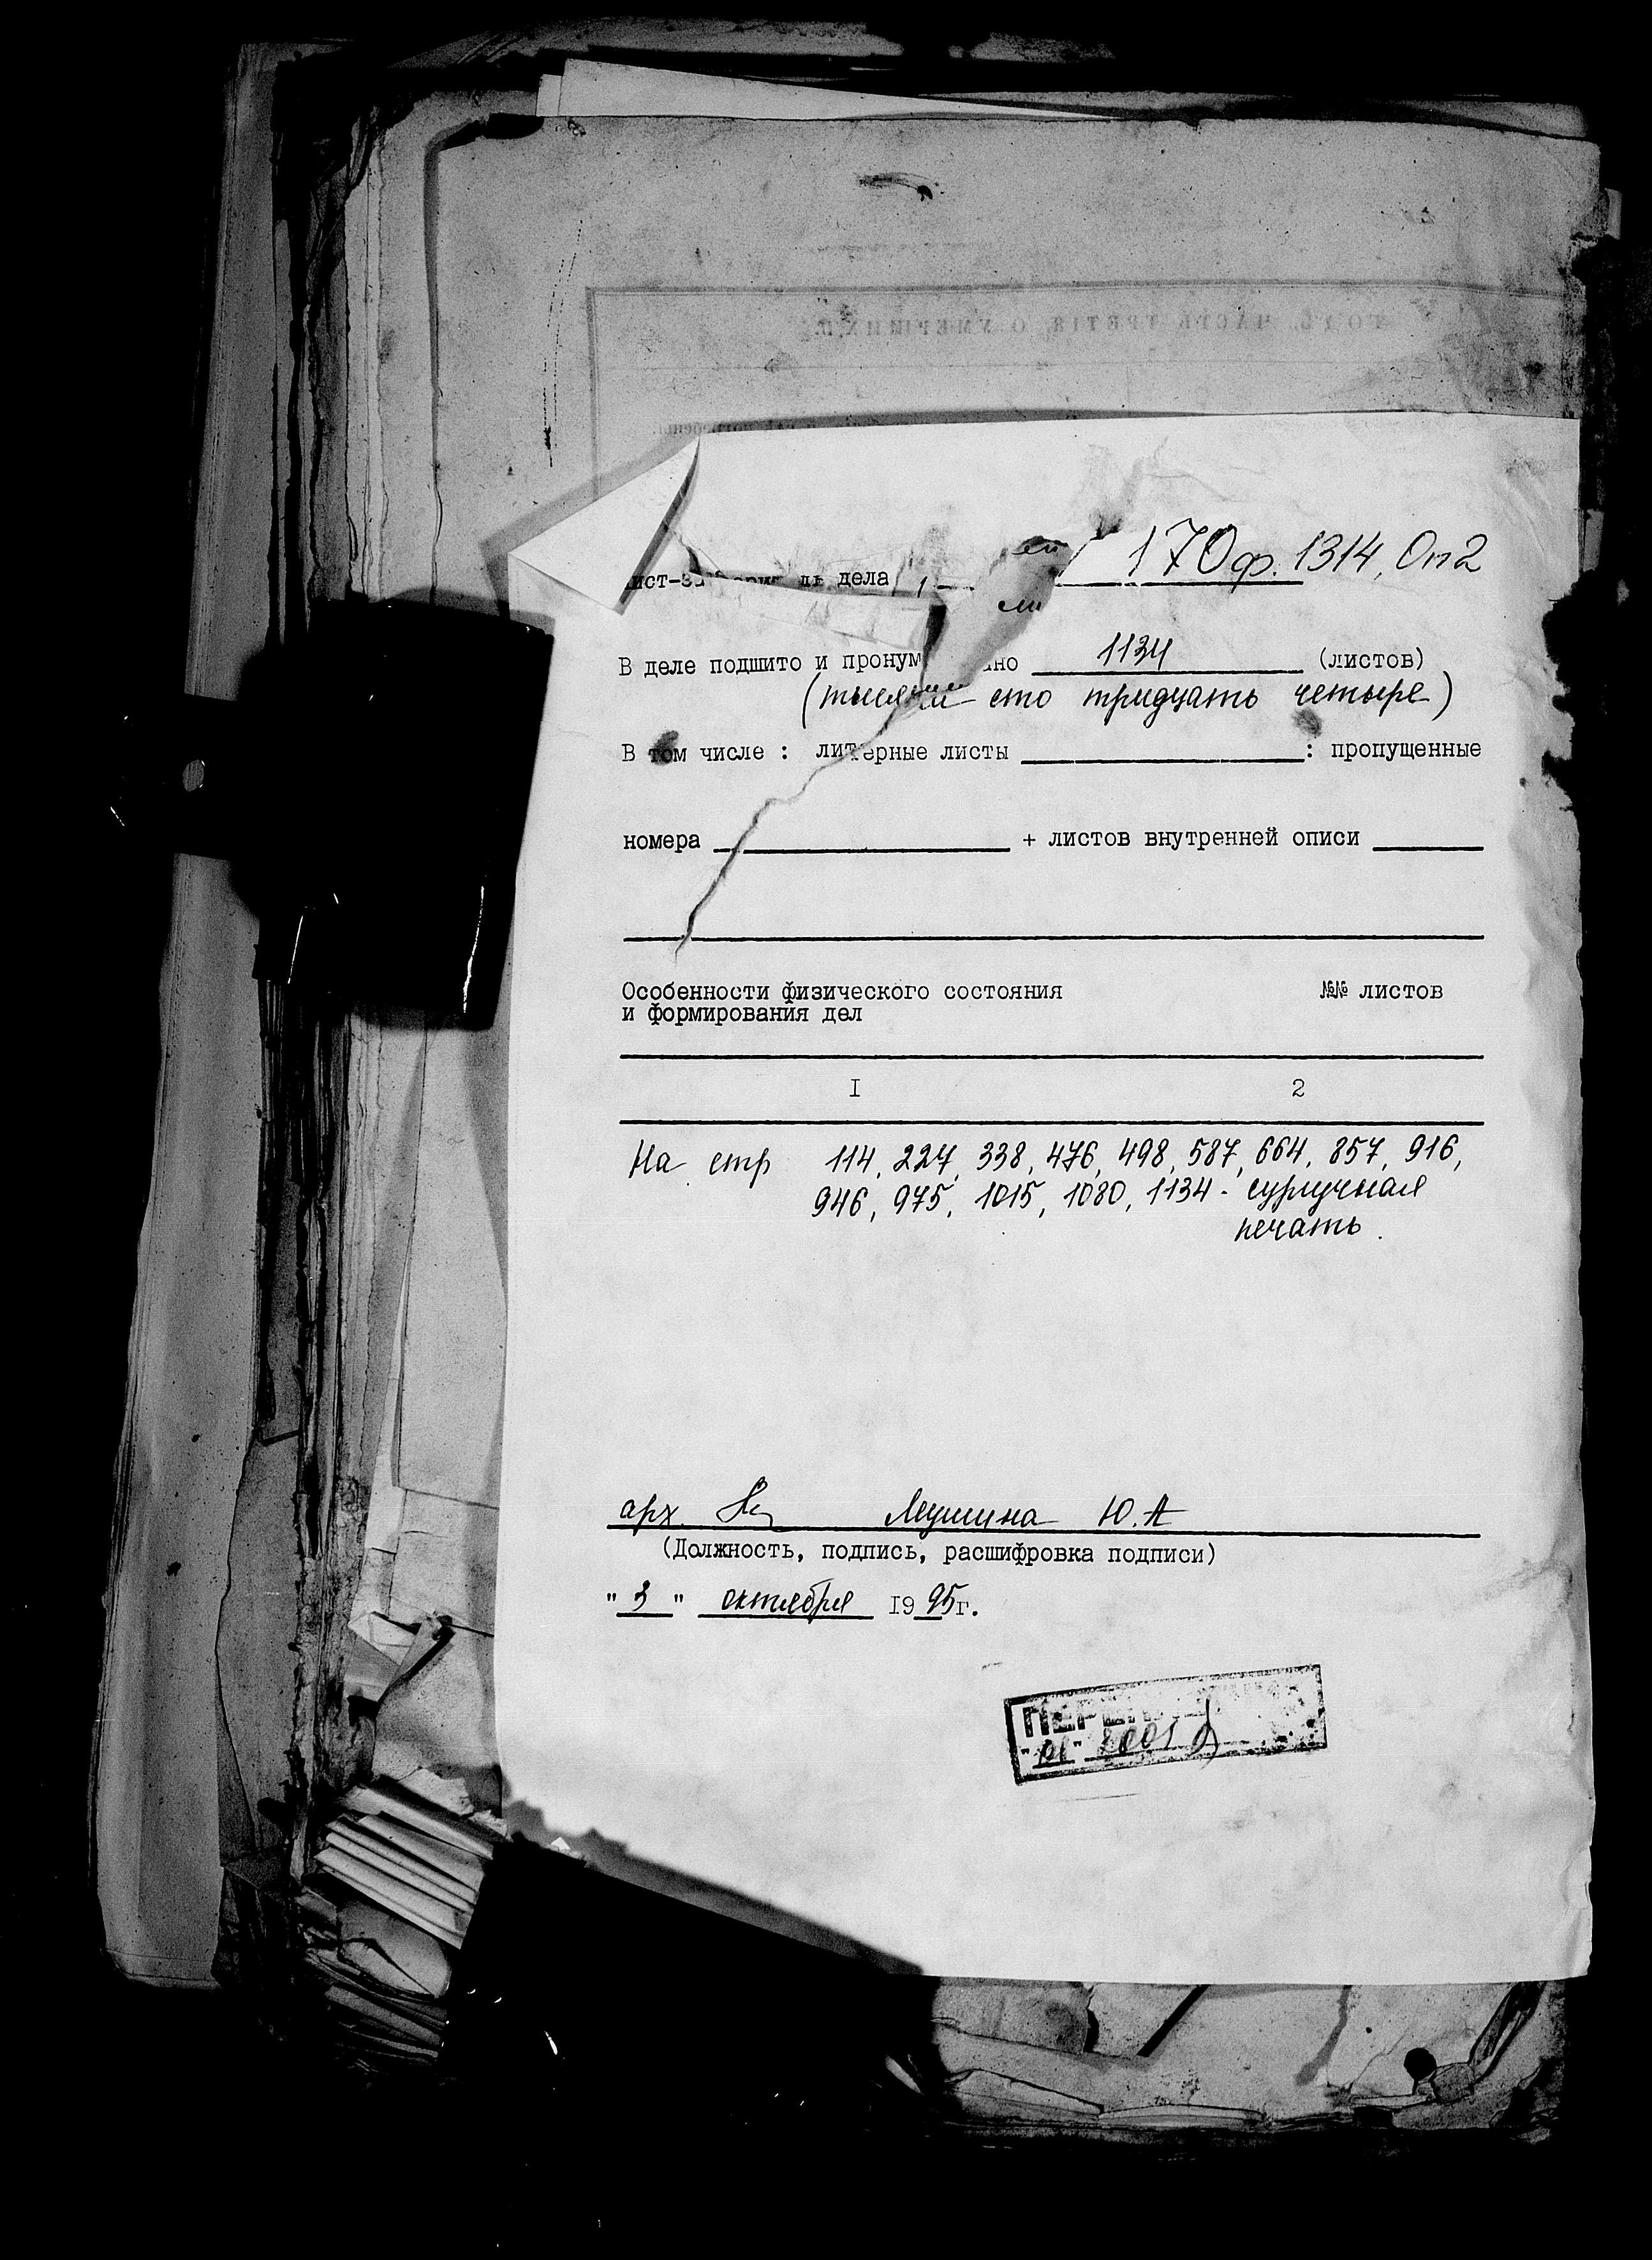 дела 170 ф. 1314, Оп2
В деле подшито и 1134 (листов)
(тысяча сто тридцать четыре)
В том числе : литерные листы : пропущенные
номера + листов внутренней описи
Особенности физического состояния №№ листов
и формирования дел
I 2
На стр 114, 227, 338, 476, 498, 587, 664, 857, 916,
946, 975, 1015, 1080, 1134 - сургучная
печать.
арх. Мушина Ю.А
(Должность, подпись, расшифровка подписи)
" 3 " октября 1995г.